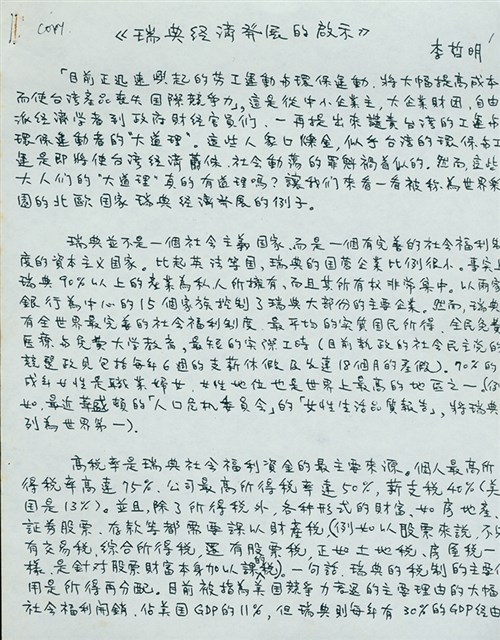 copy
《瑞典経濟発展的啟示》
李哲明
「目前正迅速興起的劳工運動与環保運動,將大幅提高成本
而使台湾產品喪失国際競争力」,這是從中小企業主,大企業財団,自由
派経濟学者到政府財経官員们,一再提出來譴責台湾的工運与
環保運動者的"大道理"。這些人眾口鑠金,似乎台湾的環保与工
運是即將使台湾経濟蕭條、社会動荡的罪魁禍首似的。然而,這些
大人们的"大道理"真的有道理嗎?讓我们來看一看被称為世界樂
園的北欧国家瑞典経濟発展的例子。
瑞典並不是一個社会主義国家,而是一個有完善的社会福利制
度的資本主义国家。比起英法等国,瑞典的国营企業比例很小。事实上
瑞典90%以上的產業為私人所擁有,而且其所有权非常集中。以兩家
銀行為中心的15個家族控制了瑞典大部份的主要企業。然而,瑞典
有全世界最完善的社会福利制度、最平均的实質国民所得、全民免費
医療与免費大学教育,最短的实際工時(目前執政的社会民主党的
競選政見包括每年6週的支薪休假及长達18個月的產假)。90%的
成年女性是職業婦女,女性地位也是世界上最高的地区之一(例
如,最近華盛頓的「人口危机委員会」的「女性生活品質報告」,將瑞典
列為世界第一)。
高税率是瑞典社会福利資金的最主要來源。個人最高所
得税率高達75%,公司最高所得税率達50%,薪支税40%(美
国是13%)。並且,除了所得税外,各种形式的財富,如房地產、
証券股票、存款等都需要課以財產税(例如以股票來說,不只
有交易税,綜合所得税,還有股票税,正如土地税、房屋税一
樣,是針对股票財富本身加以課的税)。一句話,瑞典的税制的主要作
用是所得再分配。目前被指為美国競争力衰退的主要理由的大幅
社会福利開銷,佔美国GDP的11%,但瑞典則每年有30%的GDP経由